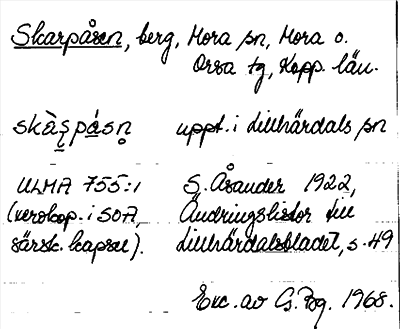 Skarpåsen, berg, Mora sn, Mora o.
Orsa tg, Kopp. län.
skàșpásṇ uppt. i Lillhärdals sn
ULMA 755:1 S. Åsander 1922,
(xerokop. i SOA, Ändringslistor till
särsk. kapsel). Lillhärdalsbladet, s. 49
Exc. av G. Bg. 1968.